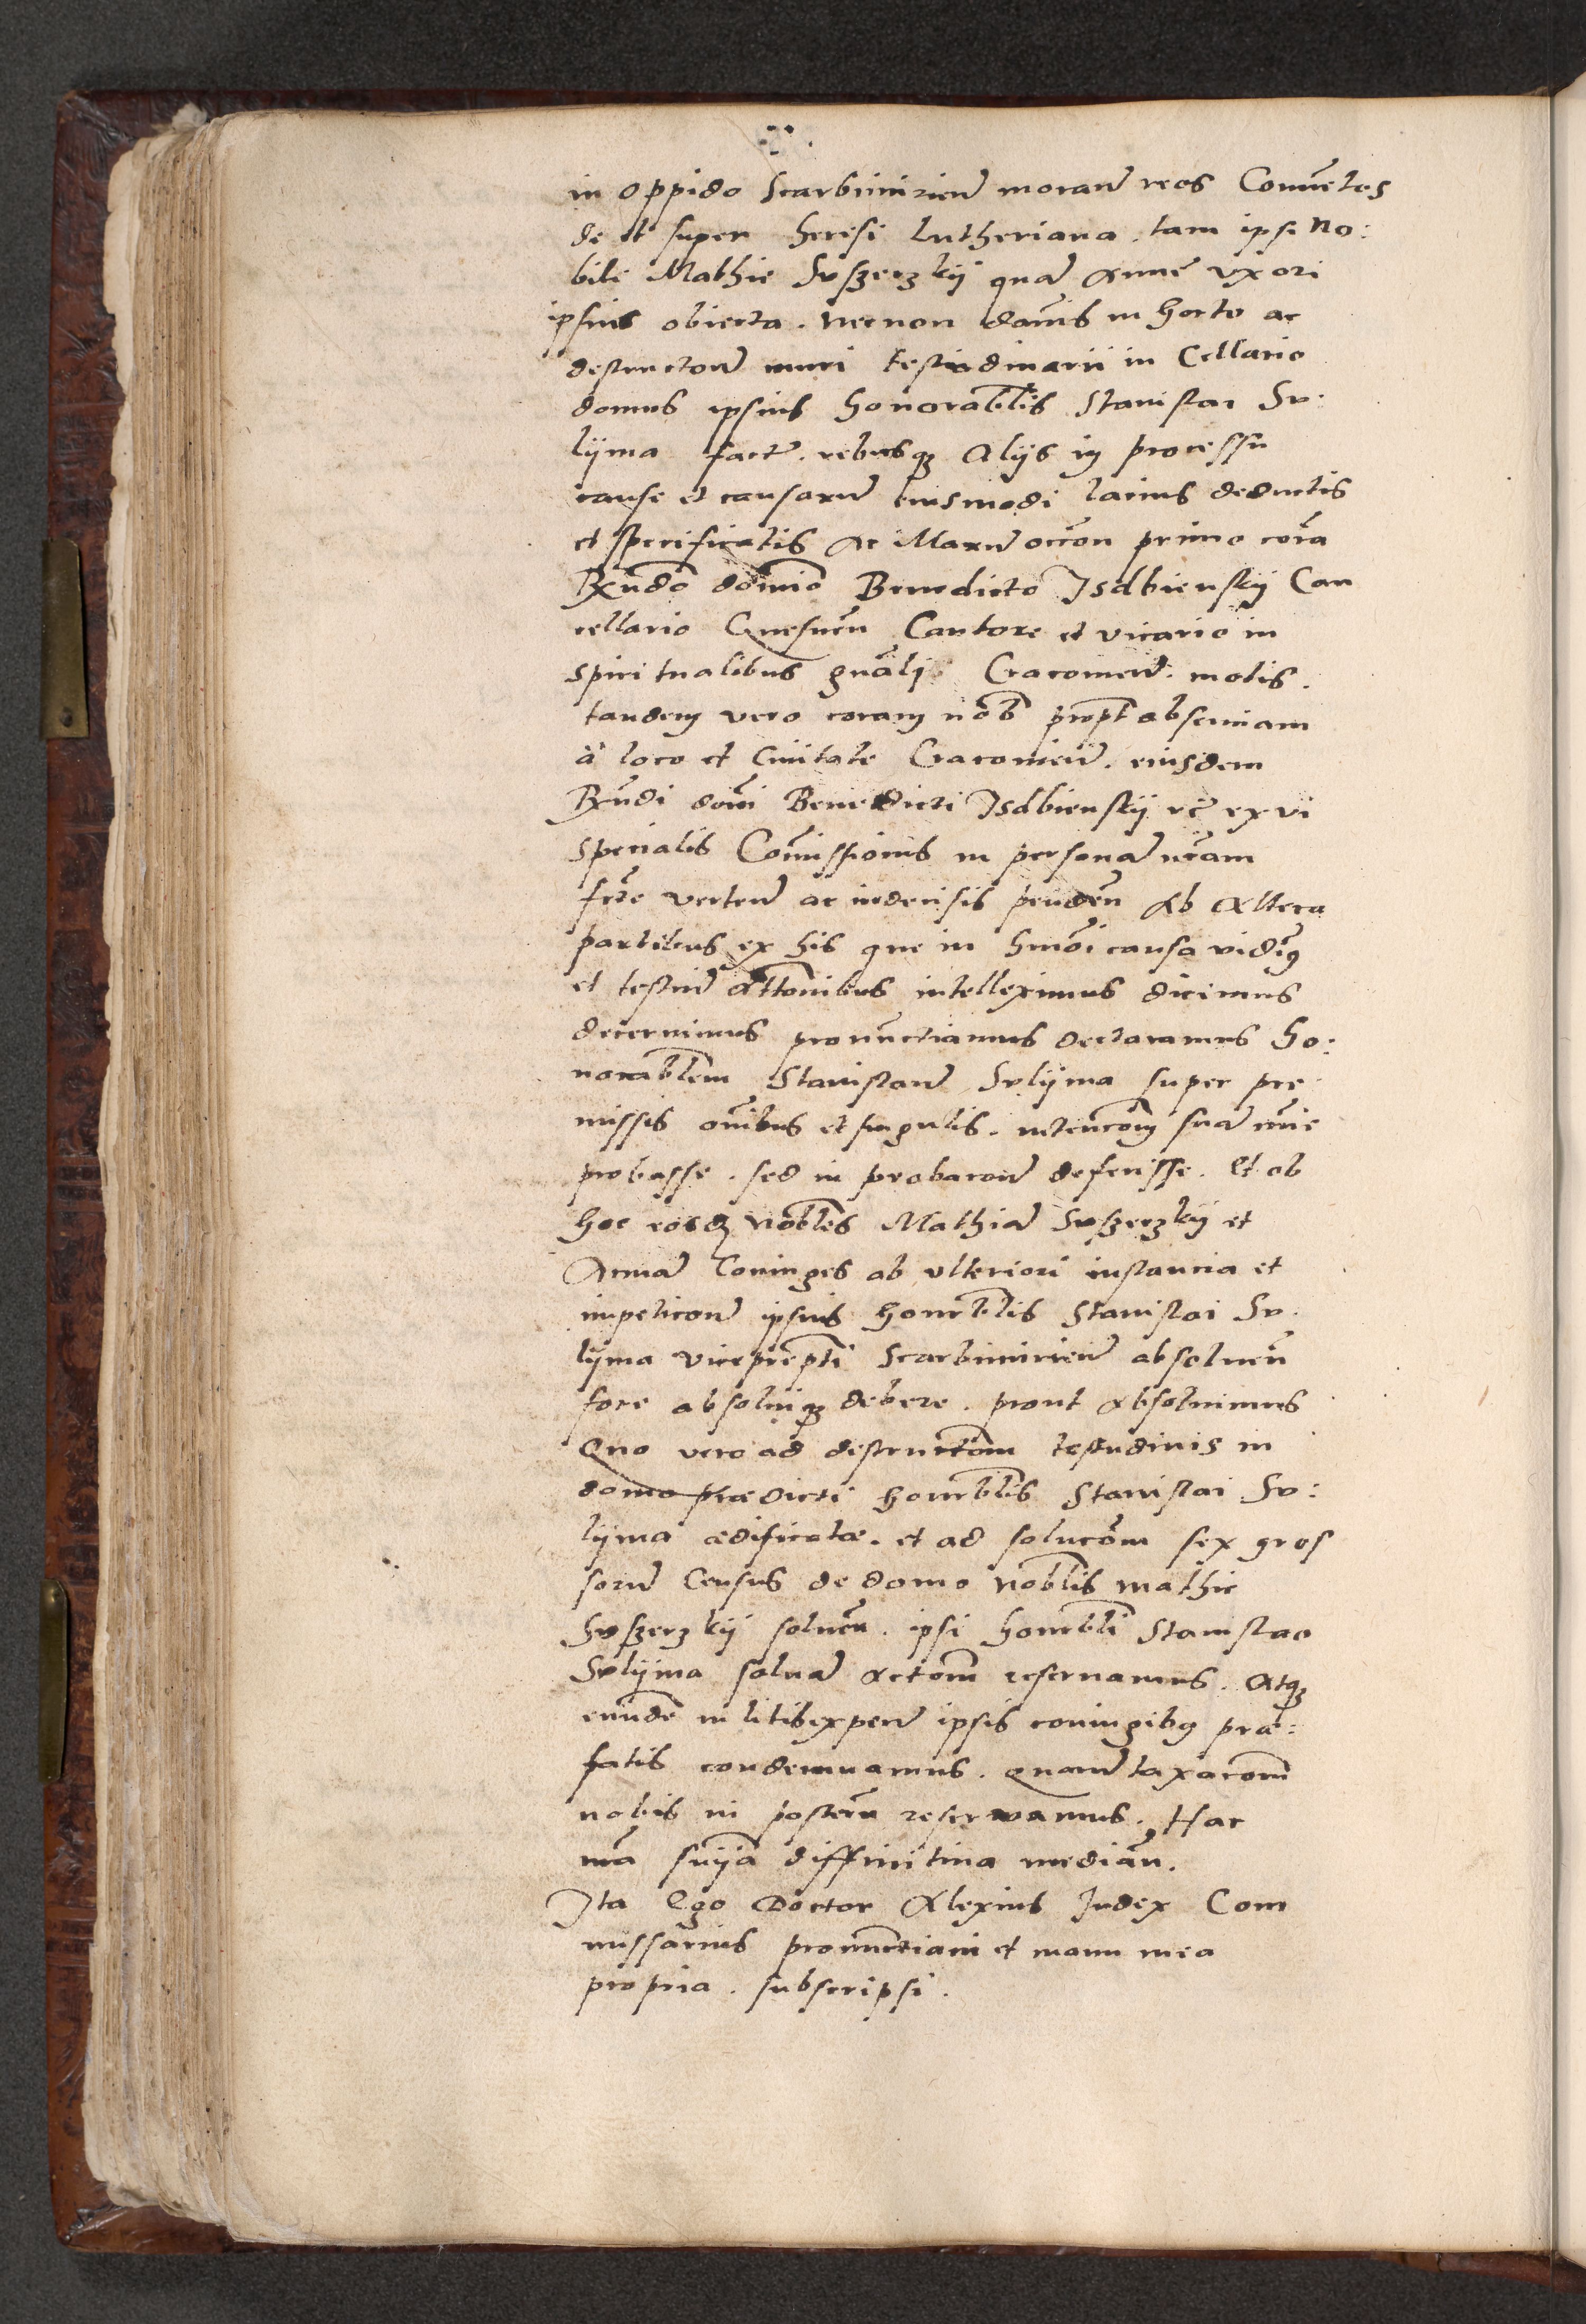 in oppido Scarbimirien moran reos Conuētos
de et super heresi Lutheriana . tam ipsi No:
bili Mathie Suszerzkij quā Anne uxori
ipsius obiecta . necnon dānis in horto ac
destructioni muri testudinarii in Cellario
domus ipsius honorablis Stanislai So:
lijma fact . rebusq Alijs in processu
cause et causarum eiusmodi lacius deductis
et specificatis Ac Maxᵉ occōn primo corā
Rxndo domino Benedicto Isdbienskij Can
cellario Gnesnen Cantore et vicario in
spiritualibus gnali Cracouien . motis .
tandem vero coram nob propt absenciam
à loco et Ciuitate Cracouien . eiusdem
Rxndi domi Benedicti Isdbienskij etc ex vi
specialis Comissionis in personā nrām
fcte verten ac indecisis penden Ab Altera
partibus ex his que in hmoi causa vidimq
et testiū attonibus intelleximus dicimus
decernimus pronunctiamus declaramus Ho:
norablem Stanislaum Solijma super pre
missis omibus et singulis . intencom suā mīe
probasse . sed in probacone defecisse . Et ob
hoc eosdē nobles Mathiā Suszerzkij et
Annā Coniuges ab ulteriori instancia et
impeticone ipsius honorblis Stanislai So .
lijma viceprepti Scarbimirien absoluen
fore absoluiq debere . prout Absoluimus
Quo vero ad destructiom testudinis in
domo prædicti honorblis Stanislai So:
lijma ædificatæ . et ad solucom sex gros
sorū Census de domo noblis Mathie
Suszerzkij soluen . ipsi honorbli Stanislao
Solijma saluā Actiom reseruamus . Atq
eundē in litis expen ipsis coniugibq præ:
fatis condemnamus . Quarū taxacom
nobis in posterū reserwamus . Hac
nrā snija diffinitiua median .
Ita Ego Doctor Alexius Judex Com
missarius pronunctiaui et manu mea
propria . subscripsi .